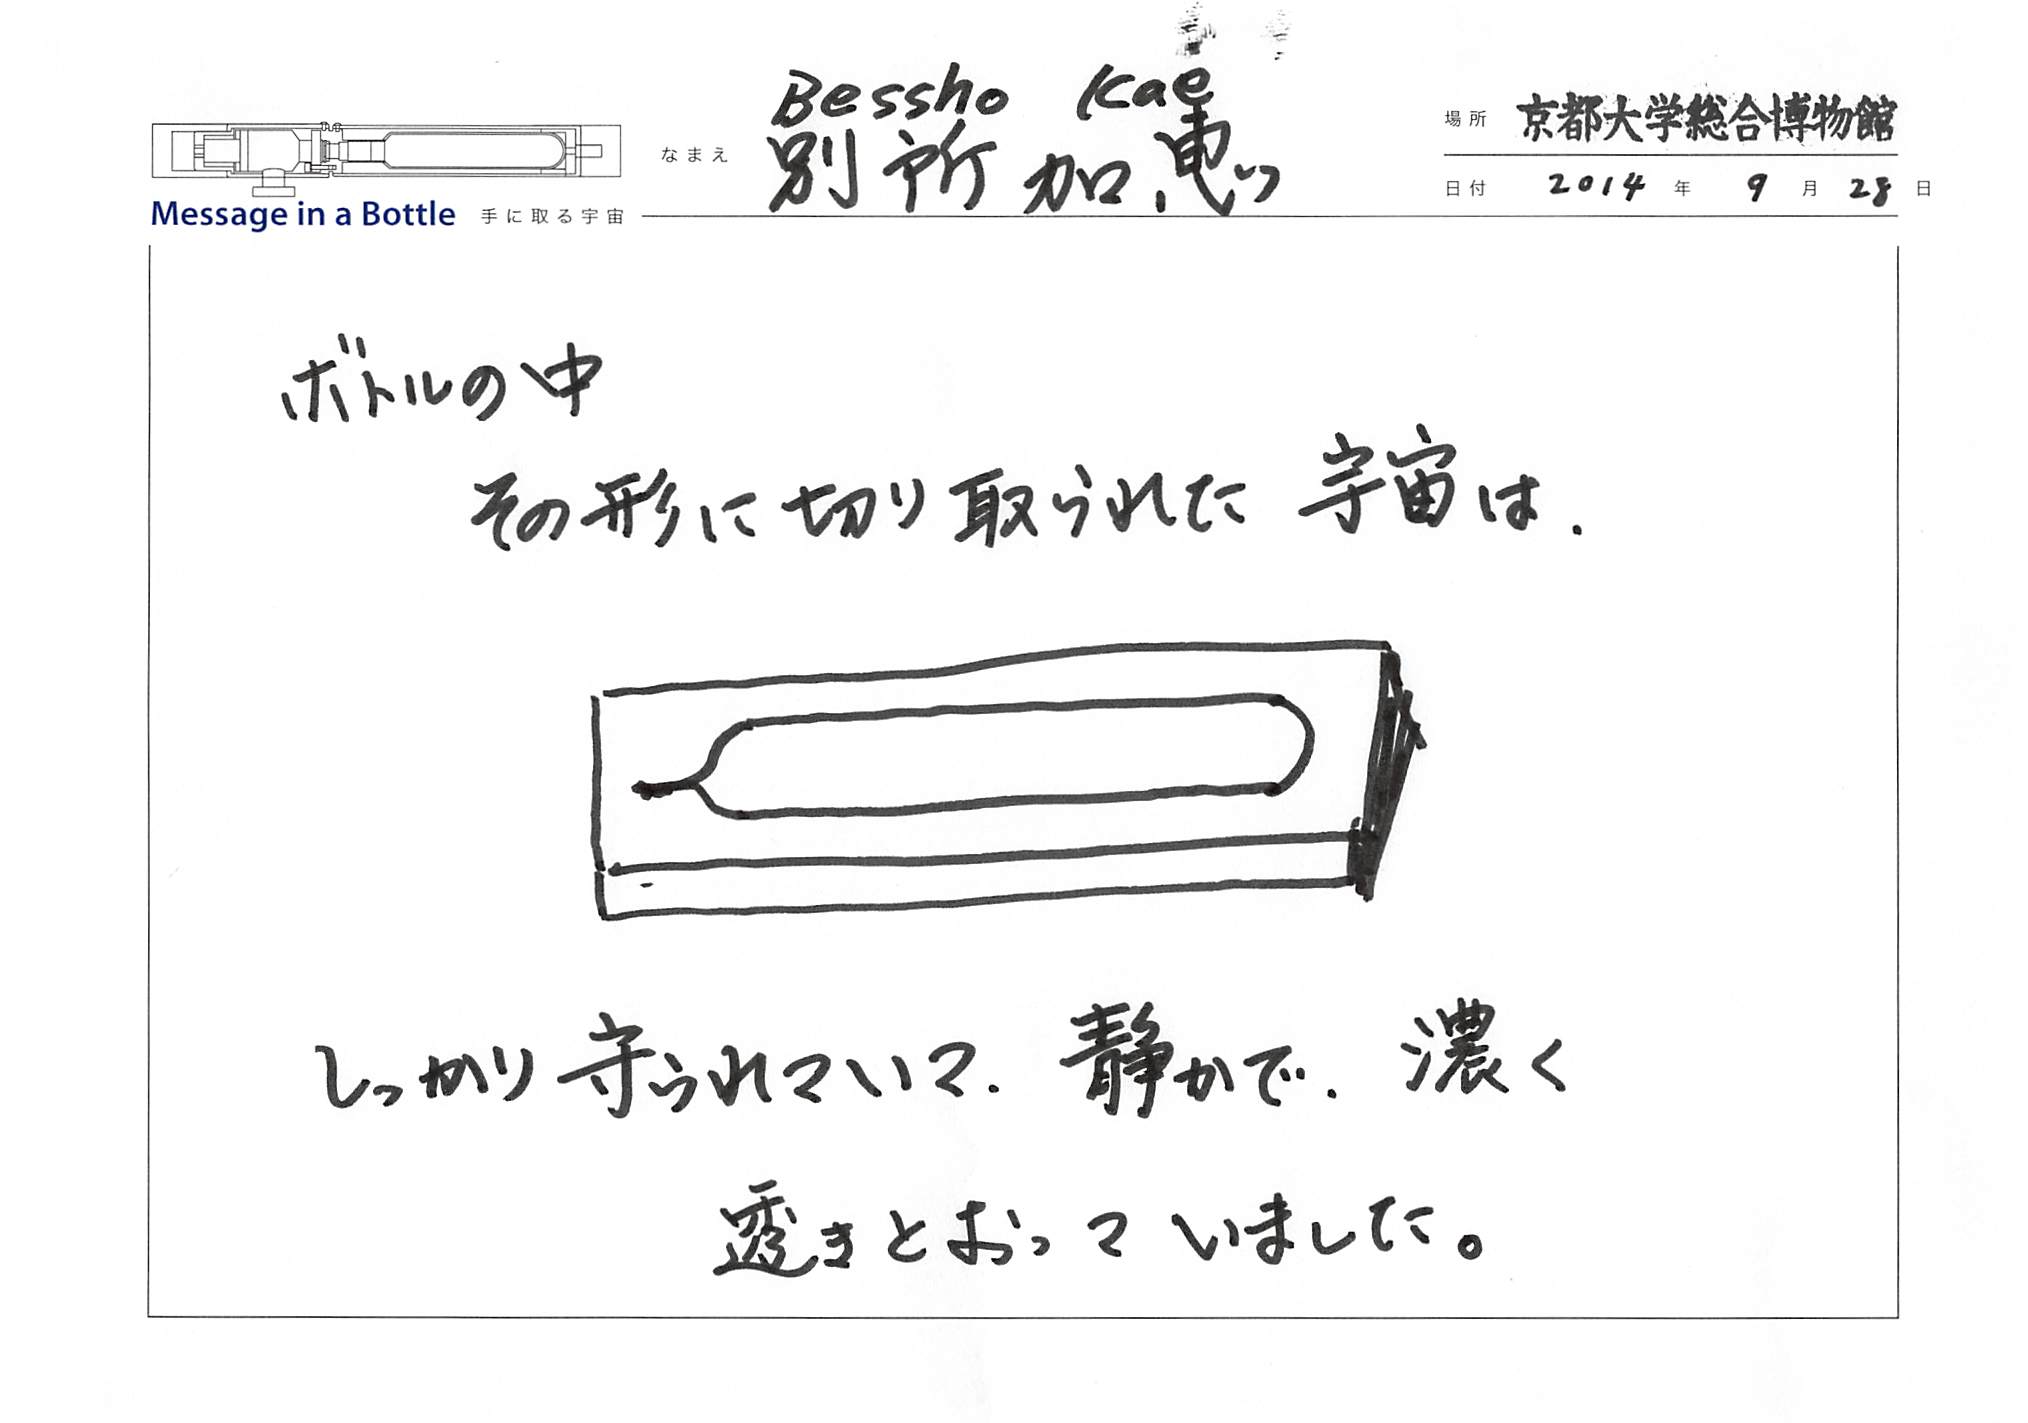 Bessho Kae
なまえ 別所 加恵
場所 京都大学総合博物館
日付 2014 年 9 月 28 日
Message in a Bottle 手に取る宇宙
ボトルの中
その形に切り取られた 宇宙は.
しっかり守られていて. 静かで. 濃く
透きとおって いました。